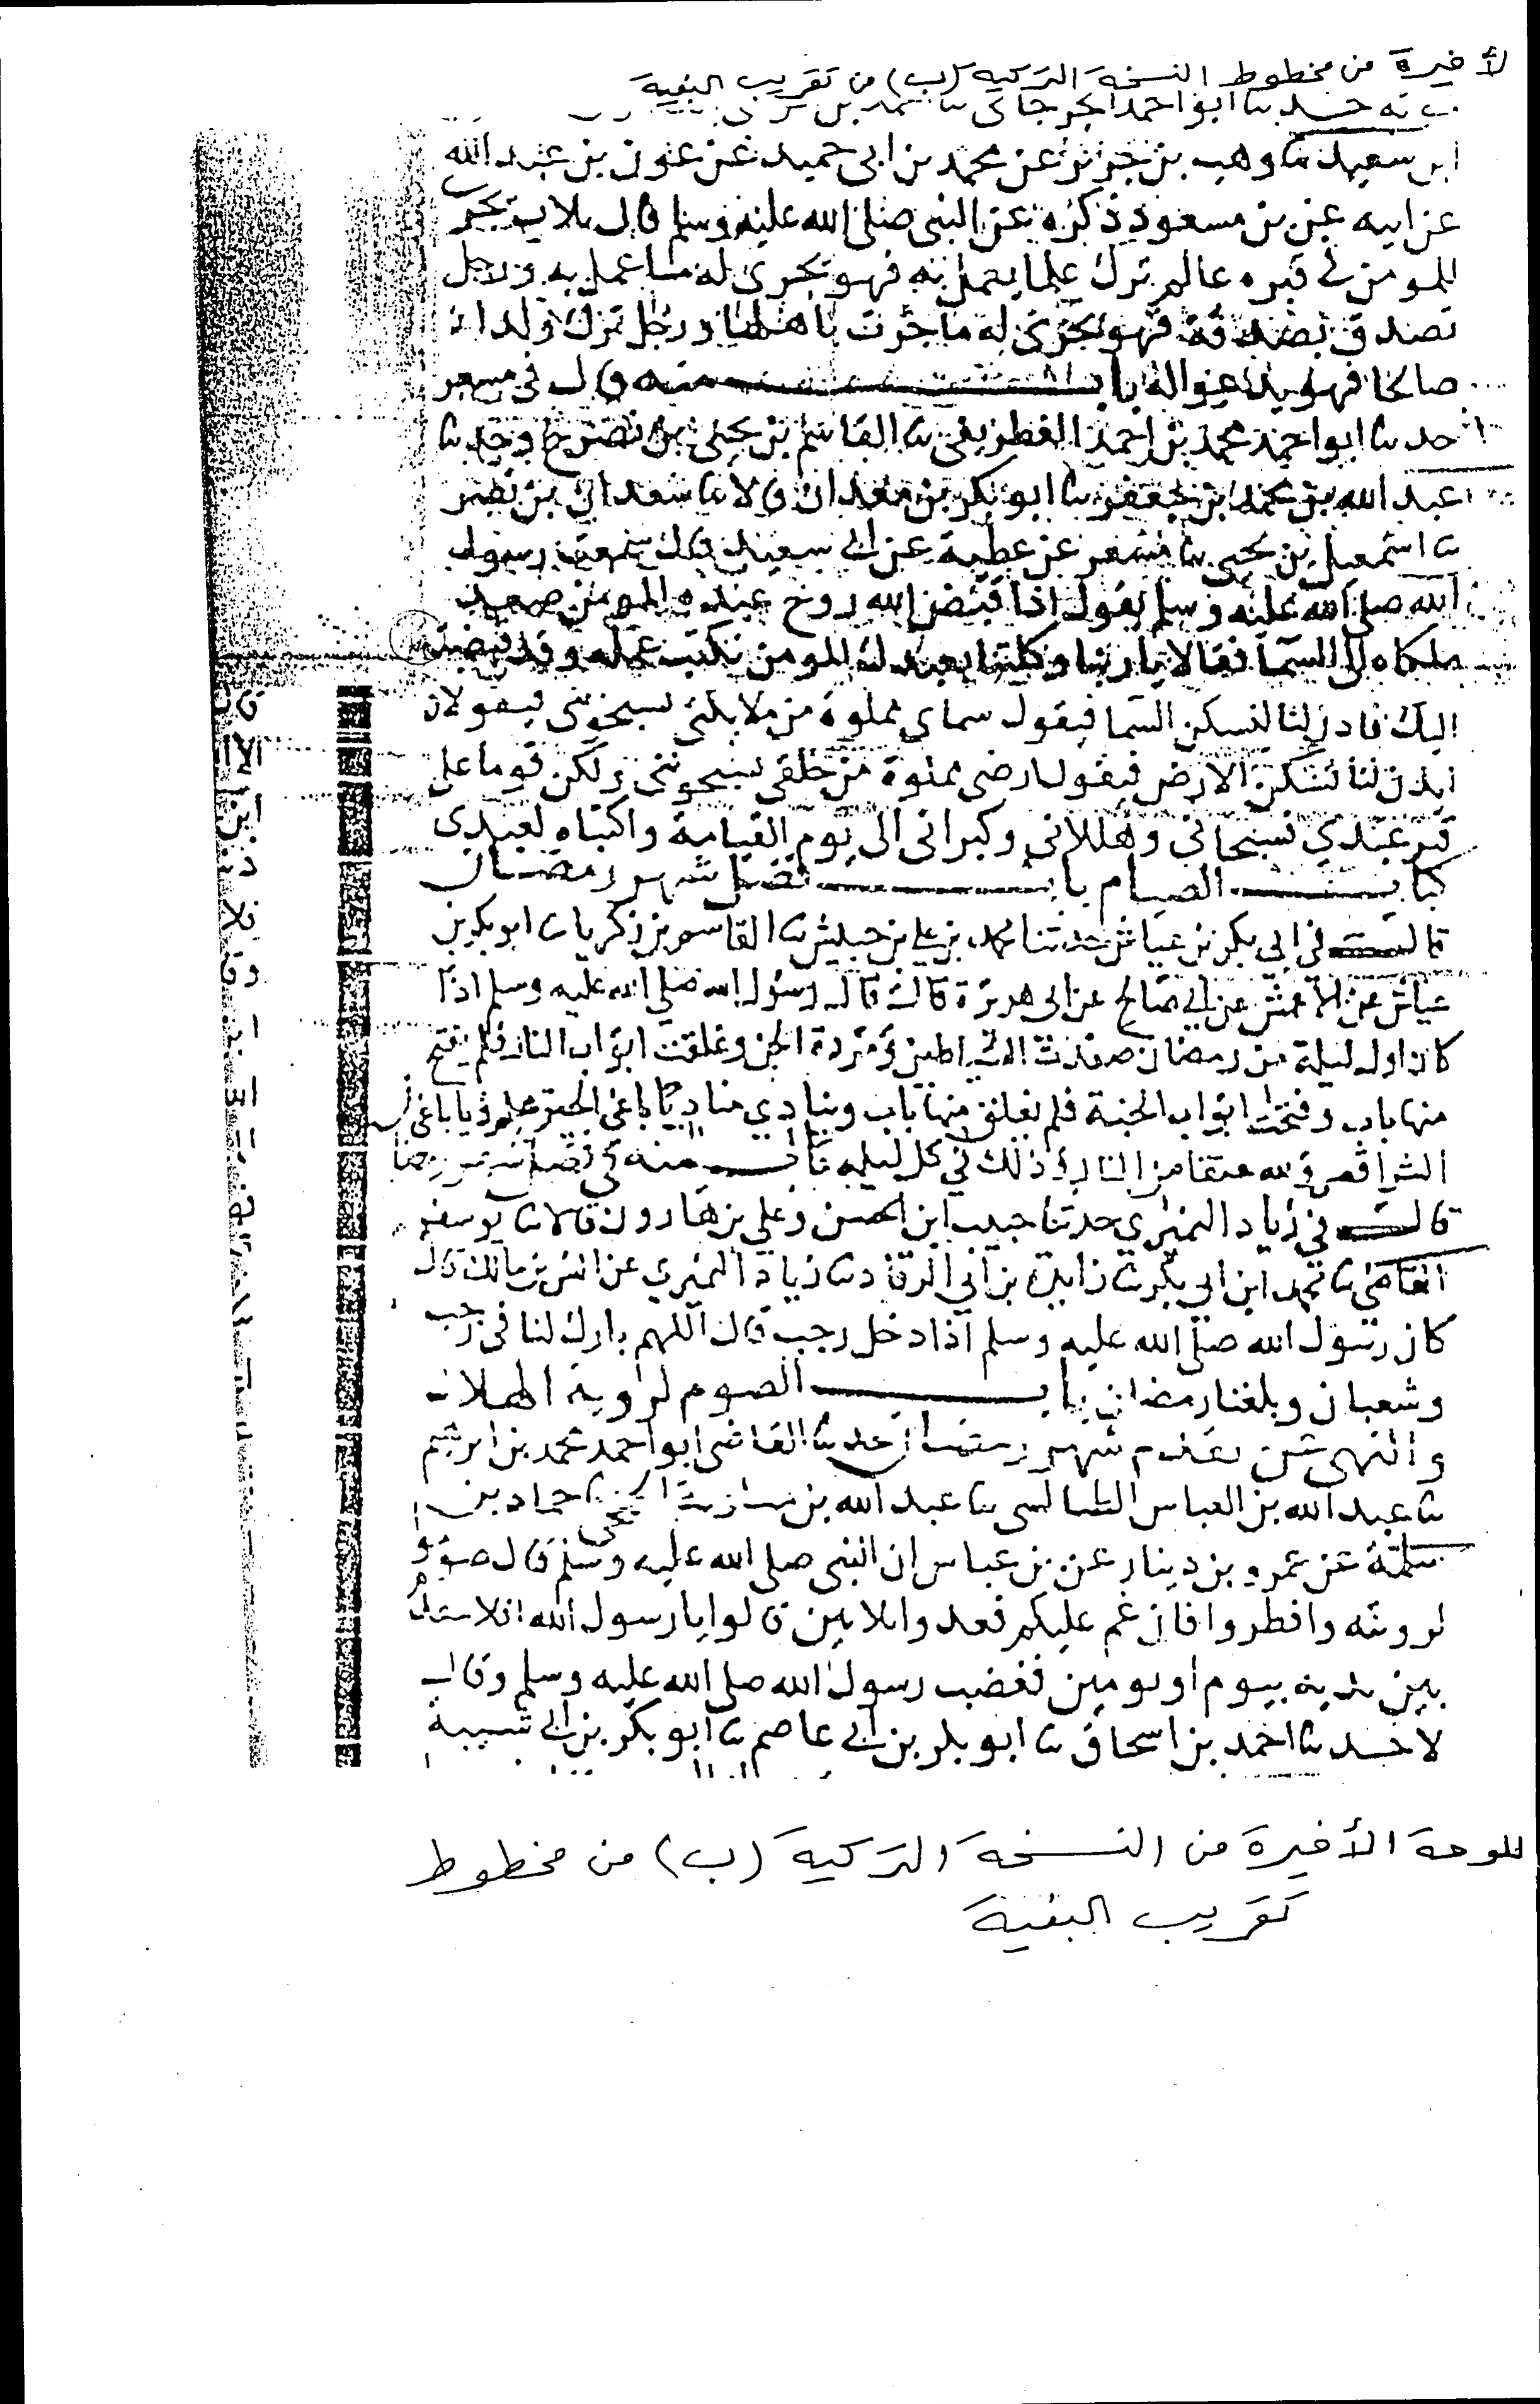 لأخيرة من مخطوط النسخة التركية (ب) من تقريب البغية
حدثنا ابو احمد الجرجاني
ابن سعيد ثنا وهب بن جرير عن محمد بن ابي حميد عن عون بن عبد الله
عن ابيه عن بن مسعود ذكره عن النبي صلى الله عليه وسلم قال ثلاث تجرى
للمومن في قبره عالم ترك علما يعمل به فهو تجرى له ما عمل به ورجل
تصدق بصدقة فهو تجرى له ما جرت باهلها ورجل ترك ولدا
صالحا فهو يدعوا له باب منه قال في مسعر
حدثنا ابو احمد محمد بن احمد الغطريفي ثنا القاسم بن يحيى بن نصر ح وحدثنا
عبد الله بن محمد بن جعفر ثنا ابو بكر بن معدان قالا ثنا سعدان بن نصر
ثنا اسمعيل بن يحيى ثنا مسعر عن عطية عن ابي سعيد قال سمعت رسول
الله صلى الله عليه وسلم يقول اذا قبض الله روح عبده المومن صعد
ملكاه الى السما فقالا يا ربنا وكلتنا بعبدك المومن نكتب عمله وقد قبضته
اليك فاذن لنا نسكن السما فيقول سماي مملوة من ملايكتي يسبحوني فيقولان
ايذن لنا نسكن الارض فيقول ارضي مملوة من خلقي يسبحوني ولكن قوما على
قبر عبدي فسبحاني وهللاني وكبراني الى يوم القيامة واكتباه لعبدي
كتاب الصيام باب فضل شهر رمضان
قال في ابي بكر بن عياش حدثنا محمد بن علي بن حبيش ثنا القاسم بن زكريا ثنا ابو بكر بن
عياش عن الاعمش عن ابي صالح عن ابي هريرة قال قال رسول الله صلي الله عليه وسلم اذا
كان اول ليلة من رمضان صفدت الشياطين ومردة الجن وغلقت ابواب النار فلم يفتح
منها باب وفتحت ابواب الجنة فلم يغلق منها باب وينادي مناد يا باغي الخير هلم ويا باغي
الشر اقصر ولله عتقا من النار وذلك في كل ليله باب منه في فضل شهر رمضا
قال في زياد النميري حدثنا حبيب ابن الحسن وعلي بن هارون قالا ثنا يوسف
القاضي ثنا محمد ابن ابي بكر ثنا زايدة بن ابي الرقاد ثنا زياد النميري عن انس بن مالك قال
كان رسول الله صلى الله عليه وسلم اذا دخل رجب قال اللهم بارك لنا في رجب
وشعبان وبلغنا رمضان باب الصوم لروية الهلال
والنهي عن تقدم شهر رمضان حدثنا القاضي ابو احمد محمد بن ابرهيم
ثنا عبد الله بن العباس الطيالسي ثنا عبد الله بن حماد بن
سلمة عن عمرو بن دينار عن بن عباس ان النبي صلى الله عليه وسلم قال صوموا
لرويته وافطروا فان غم عليكم فعدوا ثلاثين قالوا يا رسول الله افلا
بين يديه بيوم او يومين فغضب رسول الله صلى الله عليه وسلم وقال
لا حدثنا احمد بن اسحاق ثنا ابو بكر بن ابي عاصم ثنا ابو بكر بن ابي شيبة
للوحة الأخيرة من النسخة التركية (ب) من مخطوط
تقريب البغية